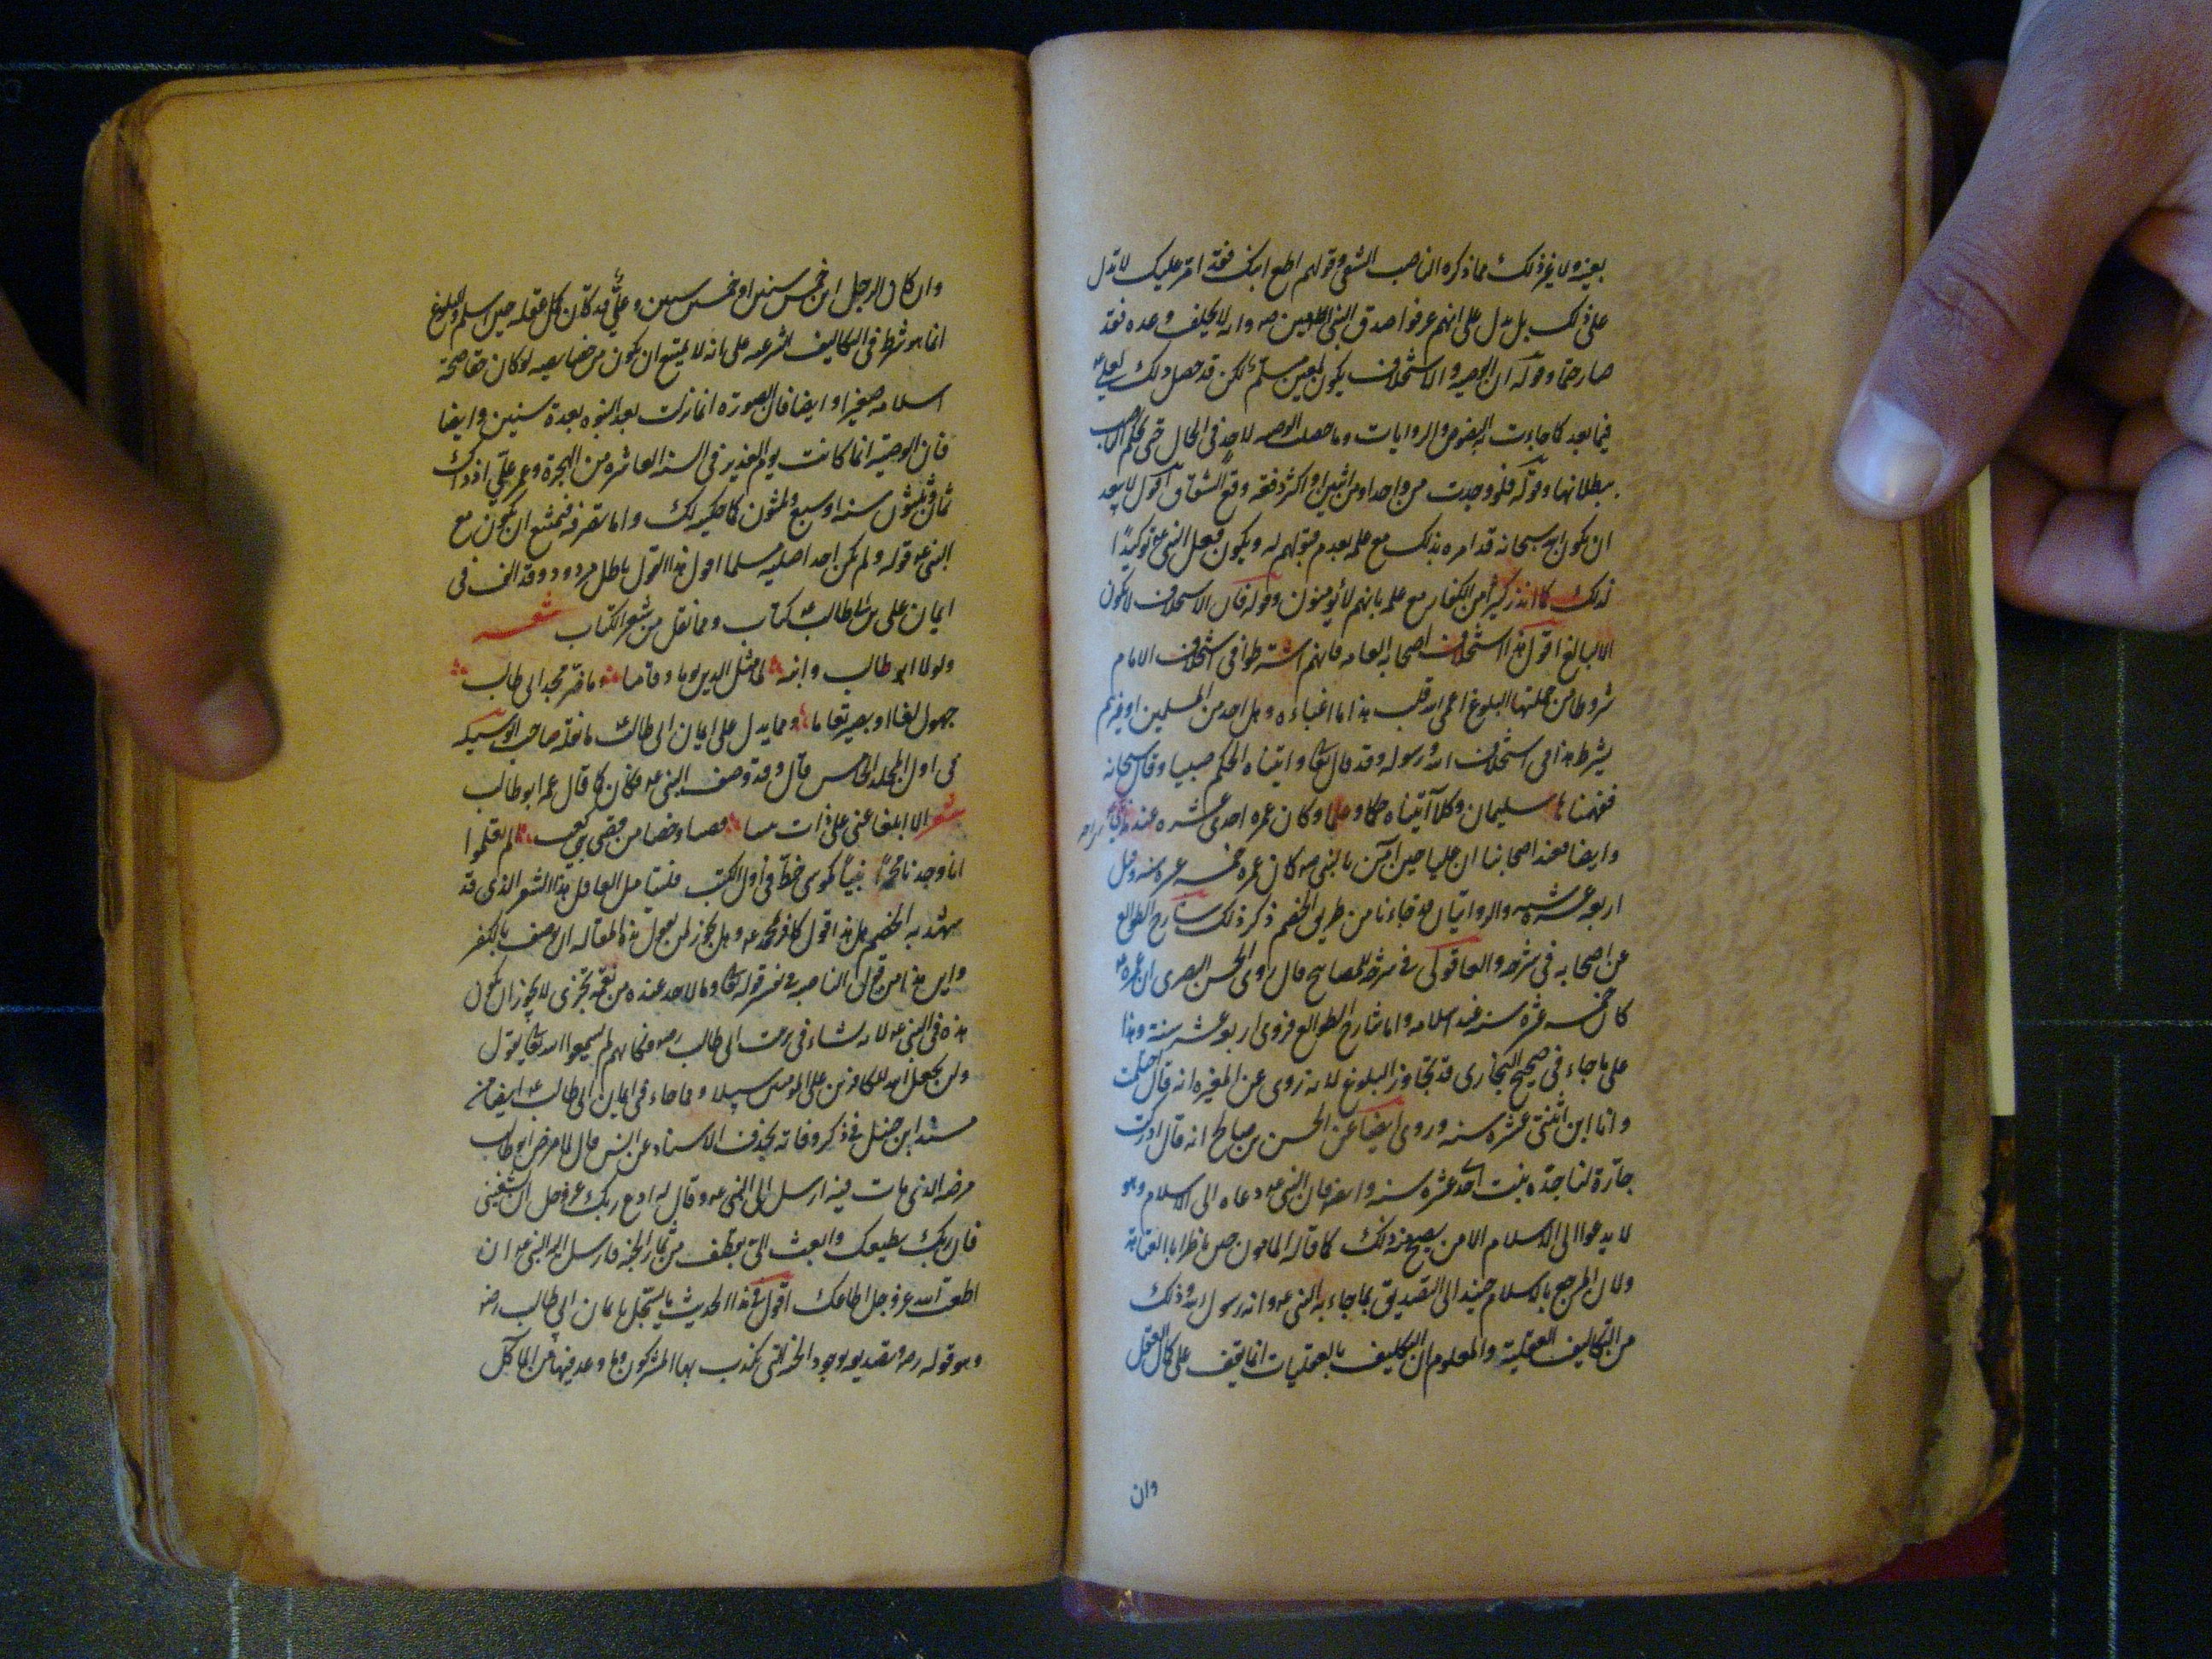 بعينه ولا غير ذلك مما ذكره الناصب الشقي وقولهم اطع ابنك فقد امر عليك لا تدل
على ذلك بل تدل على انهم عرفوا صدق النبي الامين صـ وانه لا يخلف وعده فقد
صار حتما وقوله ان الوصيه والاستخلاف يكون لمعين مسلم لكن قد حصل ذلك لعلي ع
فيما بعد كما جاءت به النصوص والروايات وما حصلت الوصيه لاحد في الحال حتى يحكم الناصب
ببطلانها وقوله فلو وجدت من واحد او من اثنين او اكثر دفعه وقع الشقاق اقول لا يبعد
ان يكون الله سبحانه قد امره بذلك مع علمه بعدم قبولهم له ويكون فعل النبي ع توكيدًا
لذلك كما انذر كثيرا من الكفار مع علمه بانهم لا يؤمنون وقوله فان الاستخلاف لا يكون
الا لبالغ اقول هذا استخلاف اصحابه العامه فانهم اشترطوا في استخلاف الامام
شروطا من جملتها البلوغ اعمى الله قلب هذا ما اغباءه وهل احد من المسلمين او غيرهم
يشرط هذا في استخلاف الله ورسوله وقد قال تعالى واتيناه الحكم صبيا وقال سبحانه
ففهمناها سليمان وكلا آتيناه حكما وعلما وكان عمره احدى عشره عند
وايضا فعند اصحابنا ان عليا حين آمن بالنبي صـ كان عمره خمسه عشره سنه وقيل
اربعه عشر سنه والروايتان قد جاءتا من طريق الخصم ذكر ذلك شارح الطوالع
عن اصحابه في شرحه والعاقولي في شرحه للمصابيح قال روى الحسن البصري ان عمره ع
كان خمسه عشره سنه عند اسلامه واما شارح الطوالع فروى اربع عشر سنة وهذا
على ما جاء في صحيح البخاري قد تجاوز البلوغ لانه روى عن المغيره انه قال احتلمت
وانا ابن اثنتي عشره سنه وروى ايضا عن الحسن بن صالح انه قال ادركت
جارة لنا جدّه بنت احد عشره سنه وايضا فان النبي ع دعاه الى الاسلام وهو
لا يدعوا الى الاسلام الا من يصح منه ذلك كما قاله المامون حين ناظر ابا العتاهيه
ولان المرجع بالاسلام حينئذ الى التصديق بما جاء به النبي ع وانه رسول الله وذلك
من التكاليف العقلية والمعلوم ان التكليف بالعقليات انما يقف على كمال العقل
وان
وان كان الرجل ابن خمس سنين او خمسين سنين وعليٌّ قد كان كمل عقله حين اسلم والبلوغ
انما هو شرط في التكاليف الشرعيه على انه لا يمتنع ان يكون من خصايصه لو كان حقا صحة
اسلامه صغيرا وايضا فان الصورة انما نزلت بعد النبوه بعدة سنين وايضا
فان الوصية انما كانت يوم الغدير في السنه العاشره من الهجرة وعمر علي اذ ذاك
ثمان وثلثون سنه او سبع وثلثون كما حكيه لك واما تصرفه فيمتنع ان يكون مع
النبي ع وقوله ولم يكن احد اصليه مسلما اقول هذا القول باطل مردود وقد الف في
ايمان علي بن ابي طالب ع كتاب ومما نقل من شعر الكتاب شعــر
ولولا ابو طالب وابنه لما مثل الدين يوما وقاما وما ضر مجد ابي طالب
جهول لغا او بصير تعاما ومما يدل على ايمان ابي طالب ما نقله صاحب الوسيله
في اول المجلد الخامس قال وقد وصف النبي ع فكان كما قال عمه ابو طالب
شعر الا ابلغا عني على ذات بيننا قصيا وخصا من قصي بني كعب الم تعلموا
انا وجدنا محمدًا نبيًا كموسى خط في اول الكتب فليتامل العاقل هذا الشعر الذي قد
شهد به الخصم هل هذا قول كافر بمحمد ع وهل يجوز لمن يقول هذه المقاله ان يوصف بالكفر
واين هذا من قول الناصب في تفسير قوله تعالى وما لاحد عنده من نعمة تجزى لا يجوز ان يكون
هذه في النبي ع لانه نشاء في بيت ابي طالب رضـ فكانهم لم يسمعوا الله تعالى يقول
ولن يجعل الله للكافرين على المومنين سبيلا ومما جاء في ايمان ابي طالب ع ايضا من
مسند ابن حنبل في ذكر وفاته بحذف الاسناد عن انس قال لما مرض ابو طالب
مرضه الذي مات فيه ارسل الى النبي ع وقال له ادع ربك عز وجل ان يشفيني
فان ربك يطيعك وابعث الي بقطف من ثمار الجنه فارسل اليه النبي ع ان
اطعت الله عز وجل اطاعك اقول في هذا الحديث ما يسجل بايمان ابي طالب رضـ
وهو قوله رضـ وتصديقه بوجود الجنه التي يكذب بها المشركون وما وعد فيها من الماكل